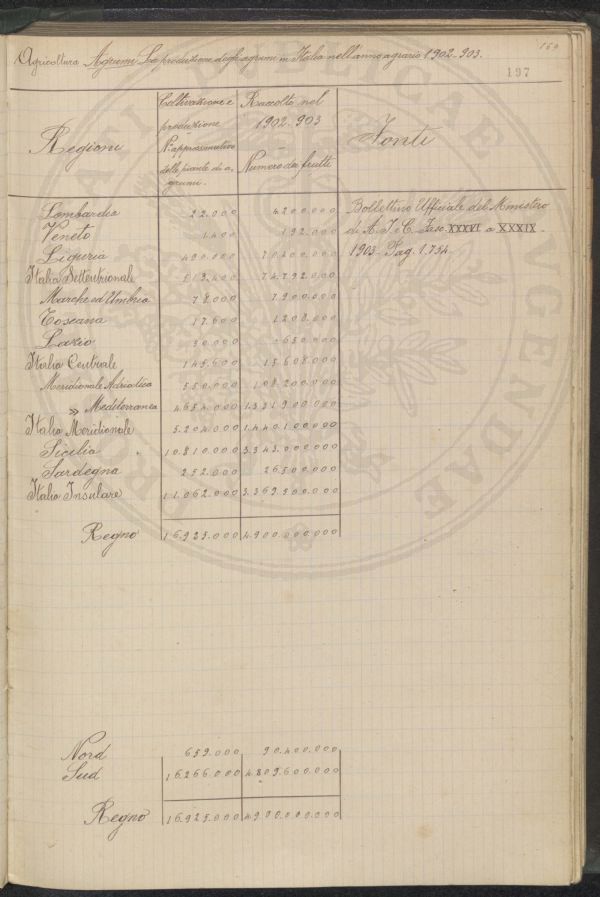 164
Agricoltura Agrumi La produzione degli agrumi in Italia nell'anno agrario 1902-903.
197
Regioni
Coltivazione e produzione
N.º approssimativo delle piante di agrumi.
Raccolto nel 1902-903
Numero dei frutti
Fonti
Lombardia 22.000 4200.000
Veneto 1.400 192.000
Liguria 490.000 70400.000
Italia Settentrionale 513.400 74.792.000
Marche ed Umbria 78.000 7900.000
Toscana 17.600 1208.000
Lazio 50.000 6500.000
Italia Centrale 145.600 15608.000
Meridionale Adriatica 550.000 108200.000
» Mediterranea 4654.000 1331900.000
Italia Meridionale 5.204.000 1.440.100.000
Sicilia 10810.000 3.343.000.000
Sardegna 252.000 26500.000
Italia Insulare 11.062.000 3.369.500.000
Regno 16.925.000 4900.000.000
Bollettino Ufficiale del Ministero
di A. I. e C. Fasc. XXXVI a XXXIX.
1903. Pag. 1.754.
Nord 659.000 90.400.000
Sud 16.266.000 4809.600.000
Regno 16.925.000 4900.000.000